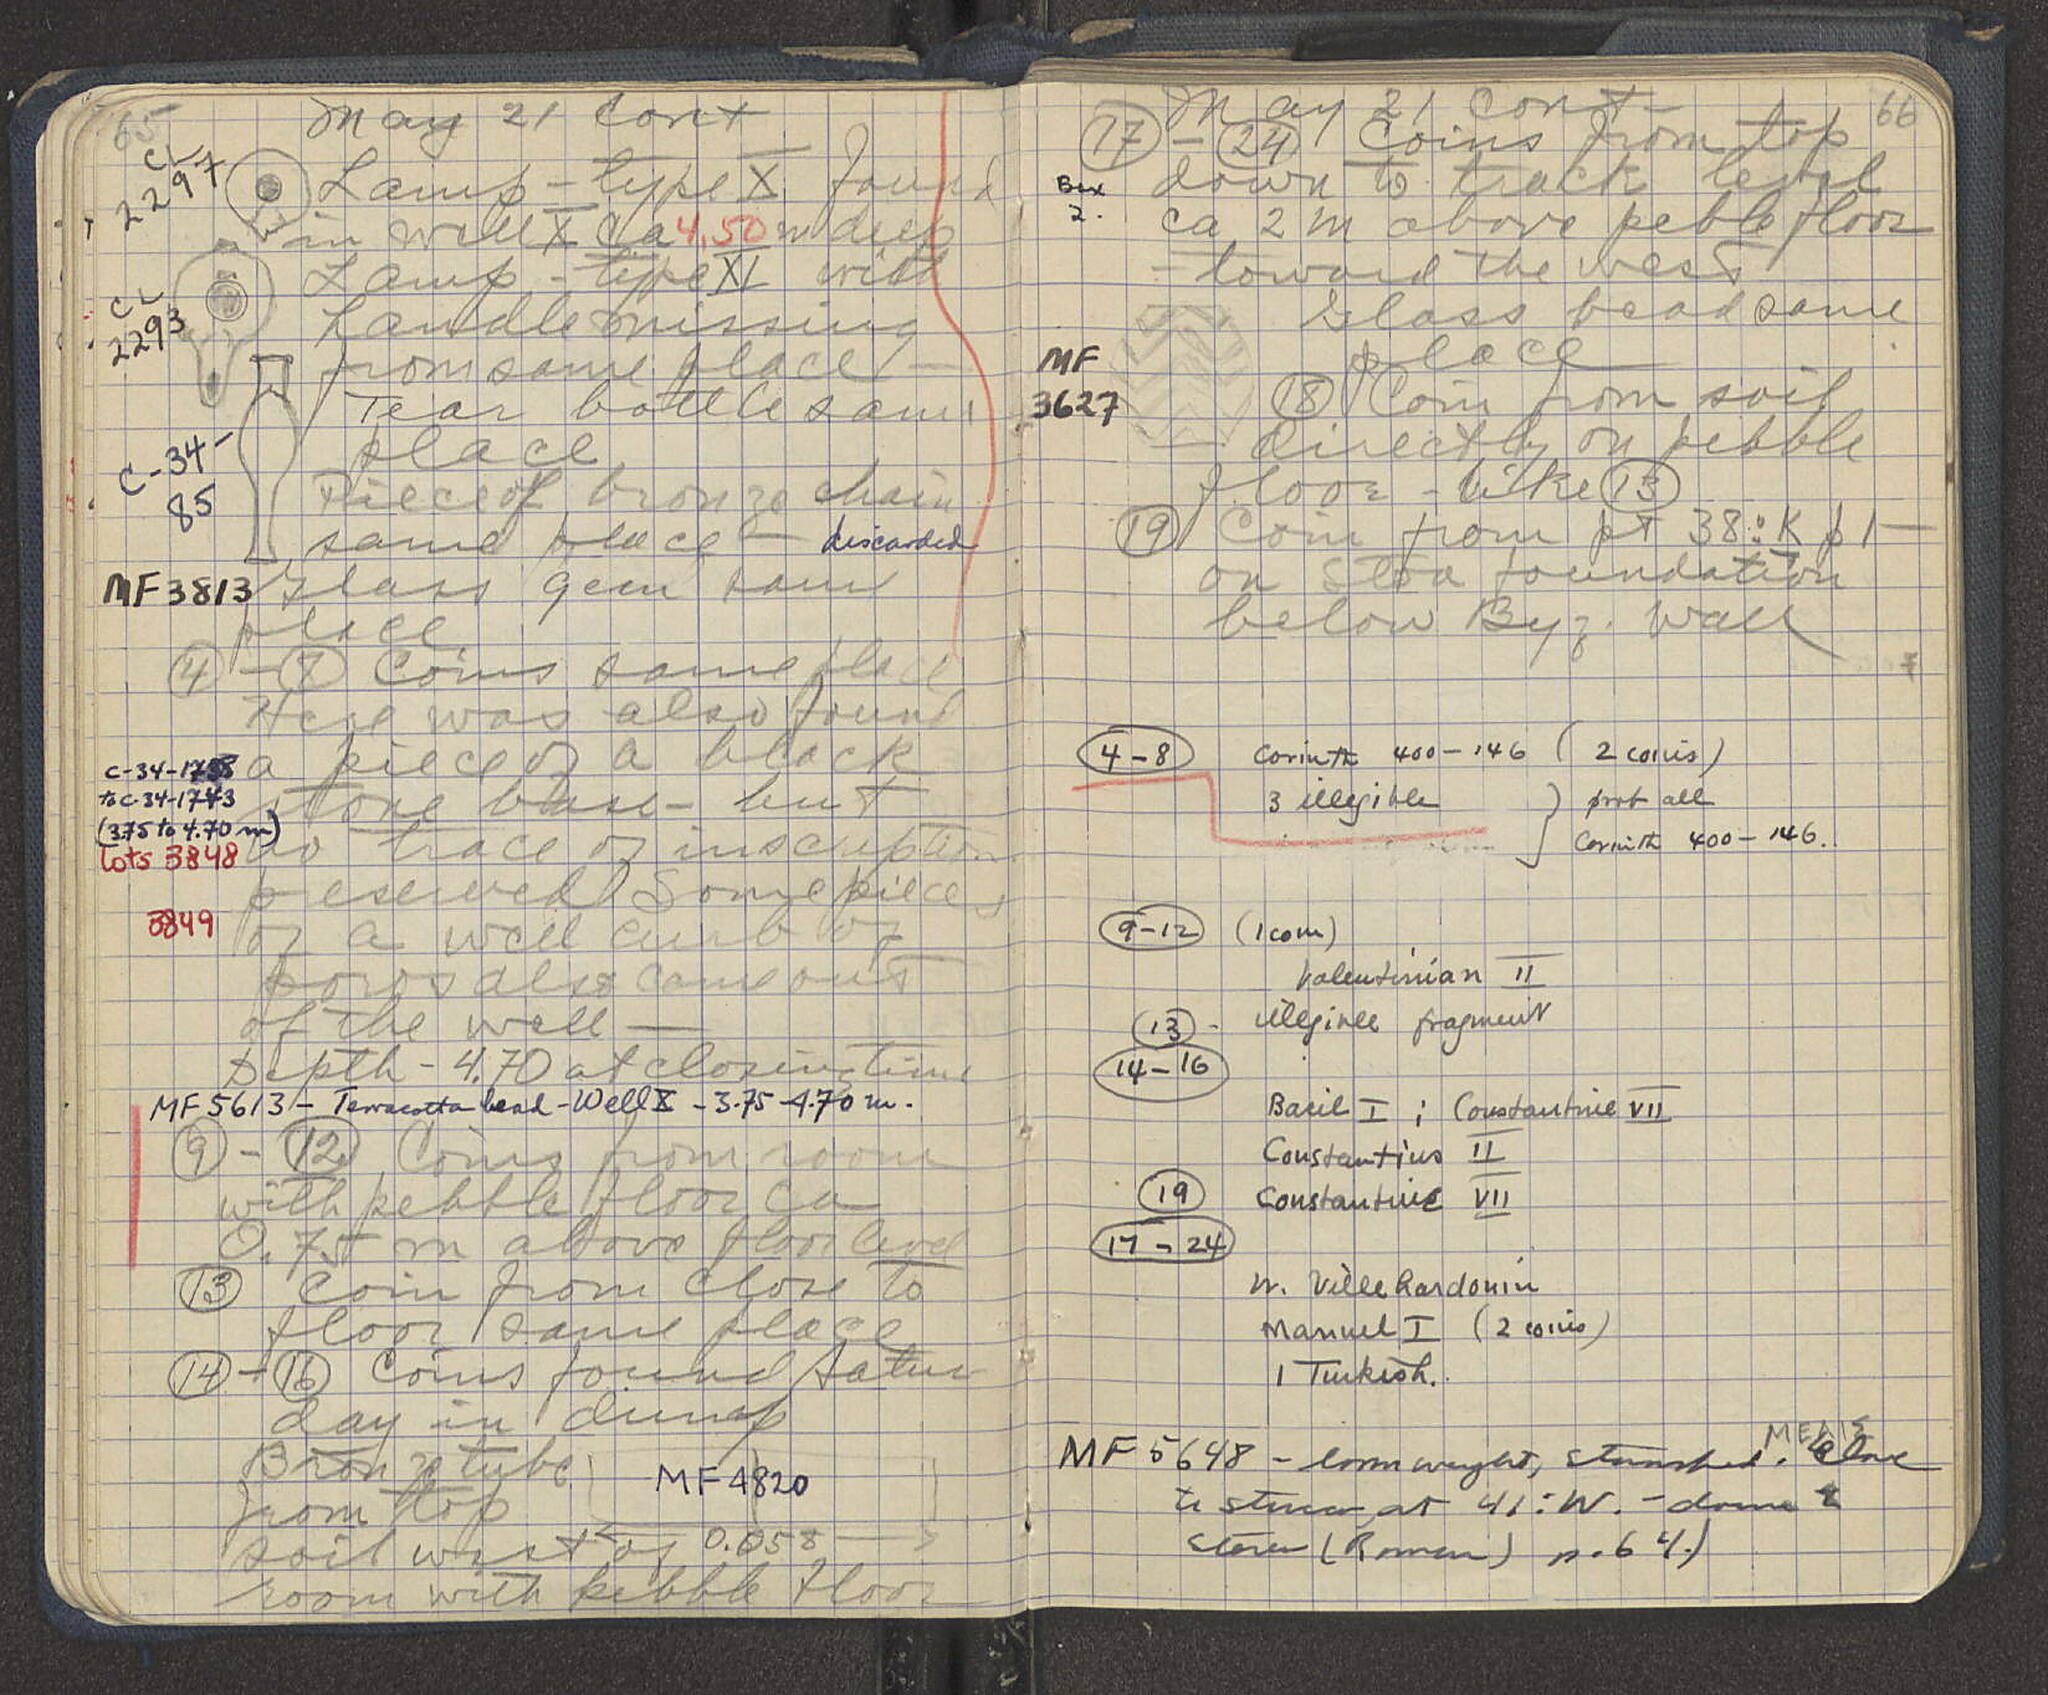 65
May 21 Cont
CL
2297
Lamp - type X found
in well X ca 4.50 m deep
CL
2293
Lamp - type XI with
handle missing
from same place -
Tear bottle same
place
C-34-
85
Piece of bronze chain
same place - discarded
MF 3813
Glass gem same
place
4 - 8 Coins same place
Here was also found
a piece of a black
C-34-1738
to C-34-1743
(3.75 to 4.70 m)
lots 3848
3849
stone base - but
no trace of inscription
preserved Some pieces
of a well curb of
poros also came out
of the well -
Depth - 4.70 at closing time
MF 5613 - Terracotta bead - Well X - 3.75-4.70 m.
9 - 12 Coins from room
with pebble floor ca
0.75 m above floor level
13 Coin from close to
floor same place
14 - 16 Coins found Satur
day in dump
Bronze tube
MF 4820
from top
soil west of 0.058
room with pebble floor
66
May 21 Cont -
17 - 24 Coins from top
Box
2.
down to track level
ca 2 m above pebble floor
- toward the west
Glass bead same
place
MF
3627
18 Coin from soil
directly on pebble
floor - like 13
19 Coin from pt 38:K p1 -
on Stoa foundation
below Byz. Wall
4-8 Corinth 400-146 (2 coins)
3 illegible } prob all
Corinth 400-146.
9-12 (1 coin)
Valentinian II
13 - illegible fragment
14-16
Basil I ; Constantine VII
Constantius II
19 Constantine VII
17-24
W. Villehardouin
Manuel I (2 coins)
1 Turkish.
MF 5648 - loom weight, stamped. Close
to at 41:W. - down to
(Roman) p. 64.)